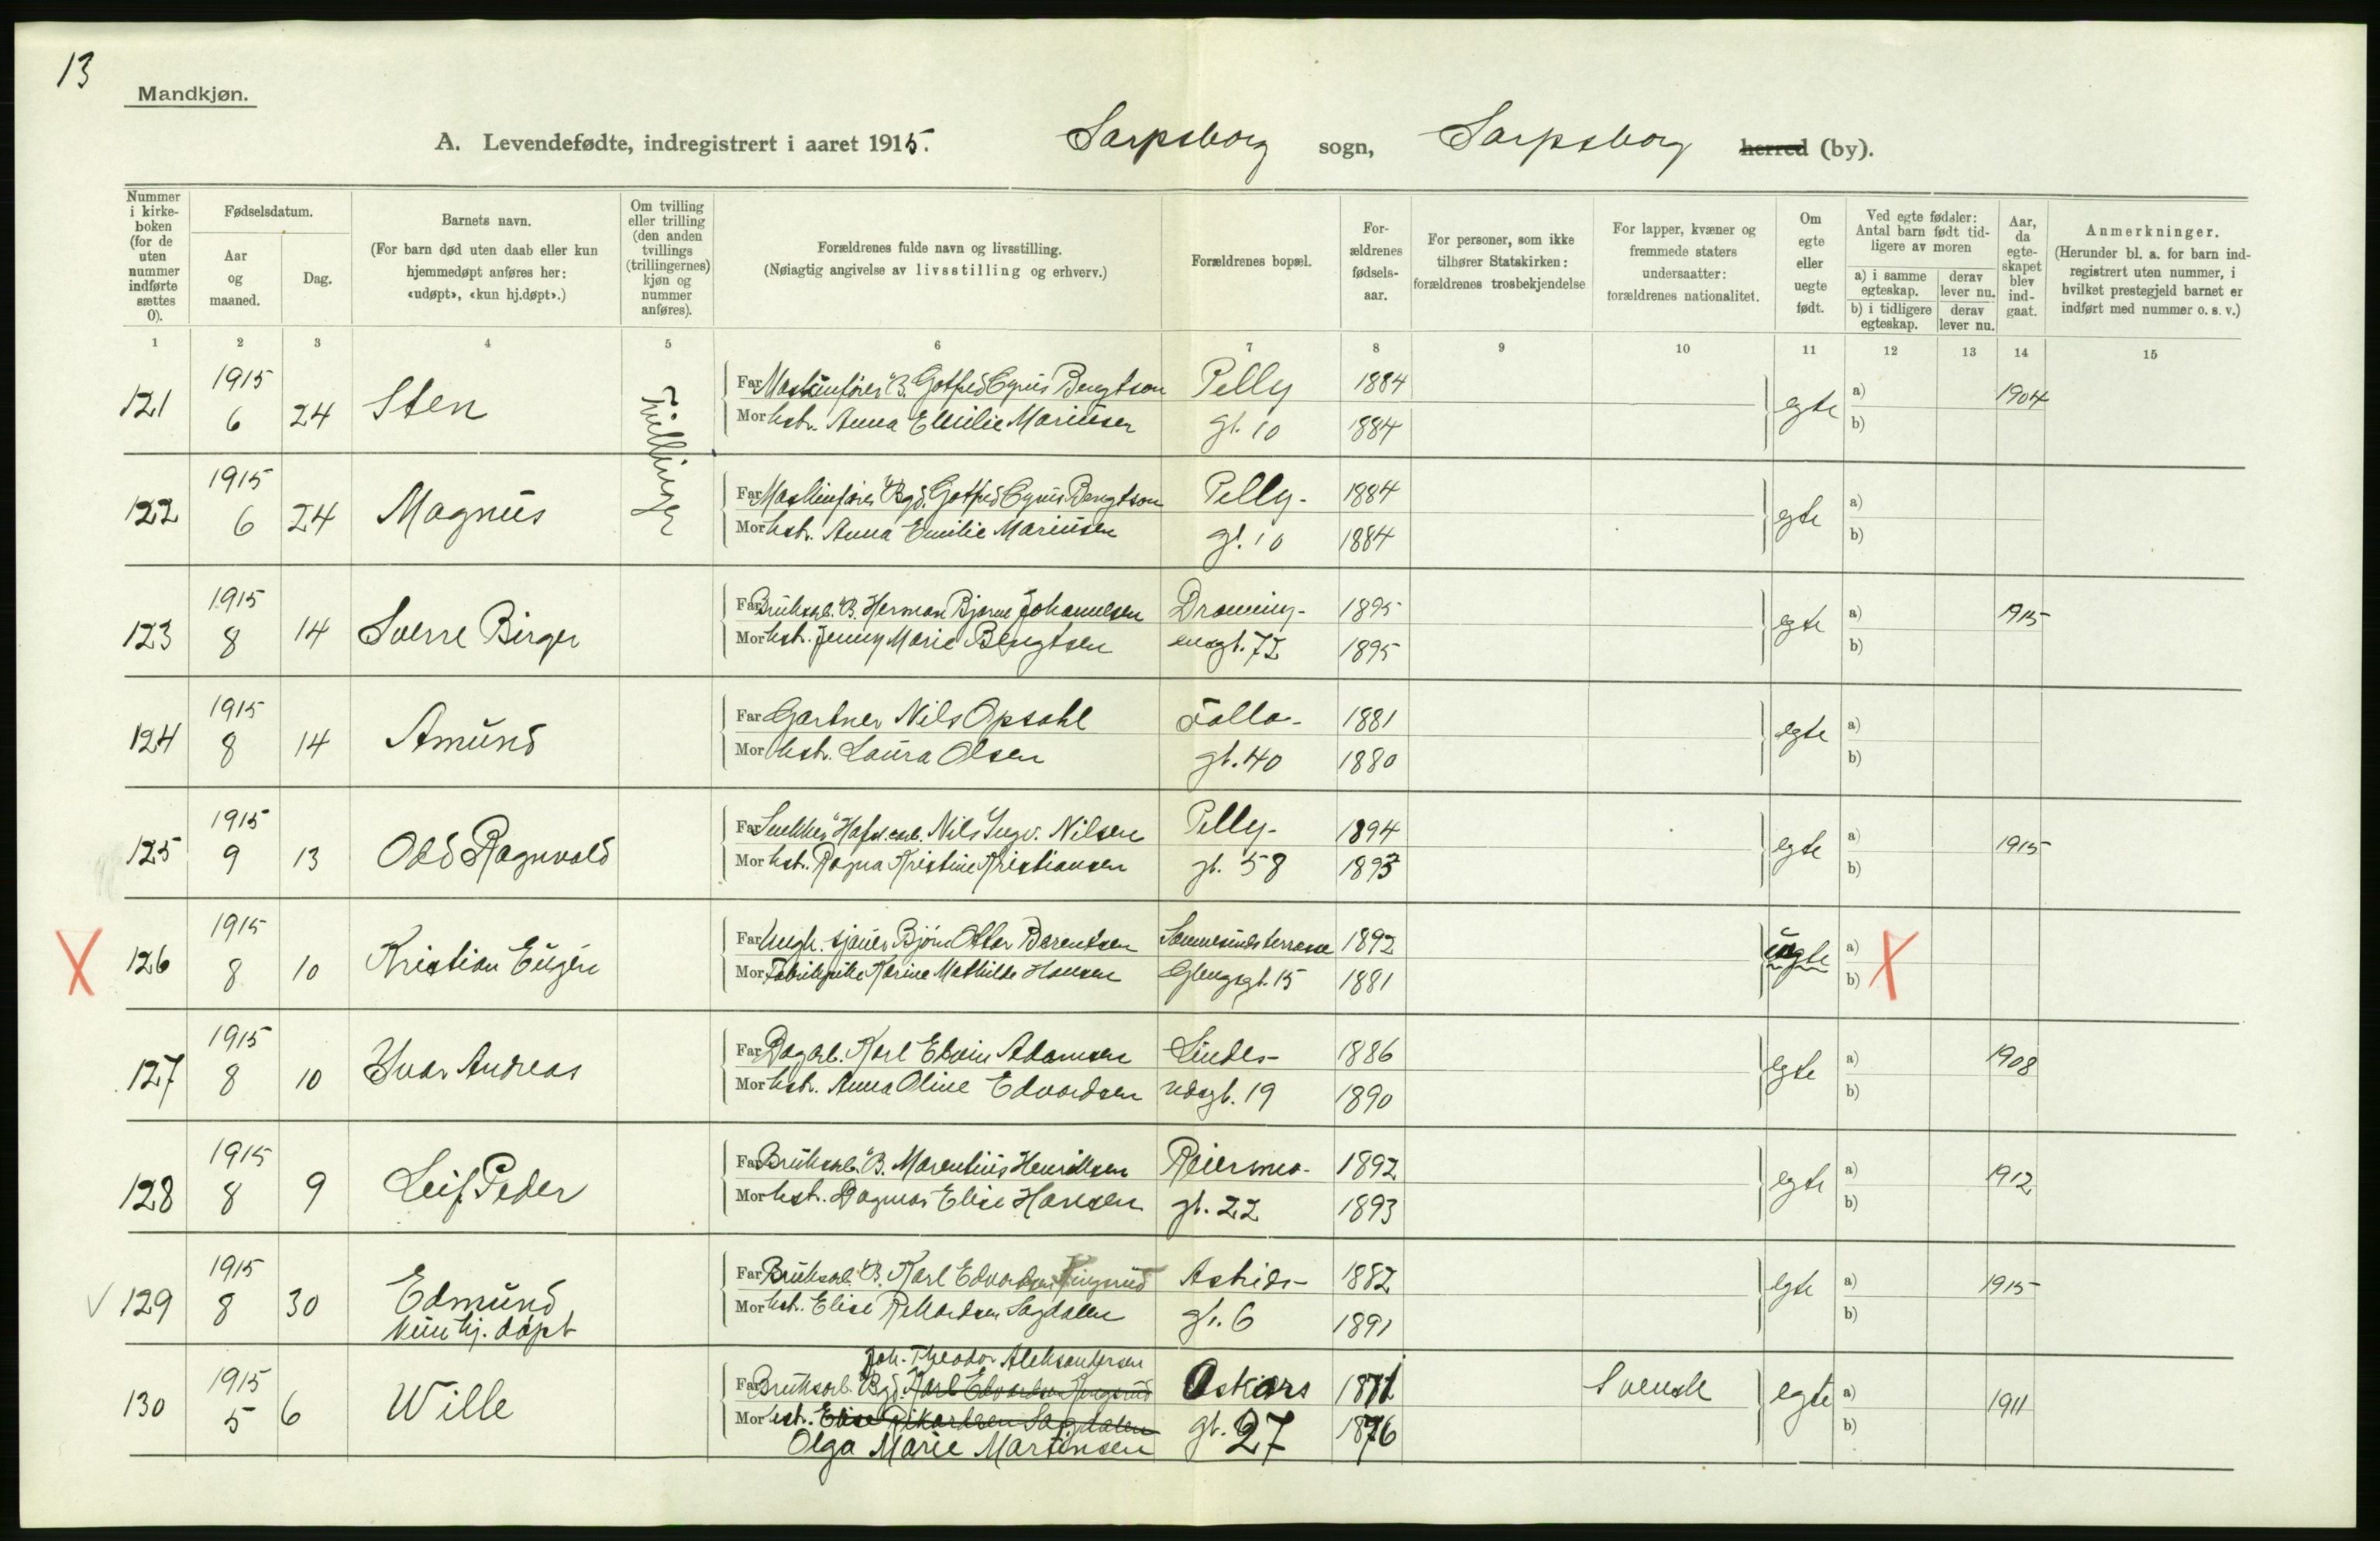 13
Mandkjøn.
A. Levendefødte, indregistrert i aaret 1915. Sarpsborg sogn, Sarpsborg herred (by).
Nummer i kirkeboken (for de uten nummer indførte sættes 0).
Fødselsdatum.
Aar og maaned.
Dag.
Barnets navn.
(For barn død uten daab eller kun hjemmedøpt anføres her: «udøpt», «kun hj.døpt».)
Om tvilling eller trilling (den anden tvillings (trillingernes) kjøn og nummer anføres).
Forældrenes fulde navn og livsstilling.
(Nøiagtig angivelse av livsstilling og erhverv.)
Forældrenes bopæl.
Forældrenes fødselsaar.
For personer, som ikke tilhører Statskirken: forældrenes trosbekjendelse
For lapper, kvæner og fremmede staters undersaatter: forældrenes nationalitet.
Om egte eller uegte født.
Ved egte fødsler: Antal barn født tidligere av moren
a) i samme egteskap. derav lever nu.
b) i tidligere egteskap. derav lever nu.
Aar, da egteskapet blev indgaat.
Anmerkninger.
(Herunder bl. a. for barn indregistrert uten nummer, i hvilket prestegjeld barnet er indført med nummer o. s. v.)
1 2 3 4 5 6 7 8 9 10 11 12 13 14 15
121 1915 6 24 Sten
Far Maskinfører B. Gotfred Cyrus Bengtson Pelly 1884
Mor hstr. Anna Emilie Mariusen gt. 10 1884
egte a) b) 1904
122 1915 6 24 Magnus
Far Maskinfører Bgd. Gotfred Cyrus Bengtson Pelly- 1884
Mor hstr. Anna Emilie Mariusen gt. 10 1884
egte a) b)
123 1915 8 14 Sverre Birger
Far Bruksarb. B. Herman Bjarne Johannesen Dronning- 1895
Mor hstr. Jenny Marie Bengtsen ensgt. 72 1895
egte a) b) 1915
124 1915 8 14 Amund
Far Gartner Nils Opsahl Follo- 1881
Mor hstr. Laura Olsen gt. 40 1880
egte a) b)
125 1915 9 13 Odd Ragnvald
Far Snekker Hafsl. arb. Nils Ingv. Nilsen Pelly- 1894
Mor hstr. Ragna Kristine Kristiansen gt. 58
egte a) b) 1915
X 126 1915 8 10 Kristian Eugen
Far Ungk. sjauer Bjørn Ottar Berentsen 1892
Mor Fabrikpike Karine Mathilde Hansen Glengsgt. 15 1881
uegte a) b) X
127 1915 8 10 Ivar Andreas
Far Dagarb. Karl Edvin Adamsen Lindes- 1886
Mor hstr. Anna Oline Edvardsen næsgt. 19 1890
egte a) b) 1908
128 1915 8 9 Leif Peder
Far Bruksarb. B. Marentius Henriksen Reiersmo- 1892
Mor hstr. Dagmar Elise Hansen gt. 22 1893
egte a) b) 1912
129 1915 8 30 Edmund
kun hj. døpt
Far Bruksarb. B. Karl Edvardsen Kingsrud Astrids- 1882
Mor hstr. Elise Rikardsen Sagdalen gt. 6 1891
egte a) b) 1915
Joh. Theodor Aleksandersen
130 1915 5 6 Wille
Far Bruksarb. Bgd. Karl Edvardsen Kingsrud Oskars Svensk
Mor hstr. Elise Rikardsen Sagdalen gt. 27 1876
Olga Marie Martinsen
egte a) b) 1911